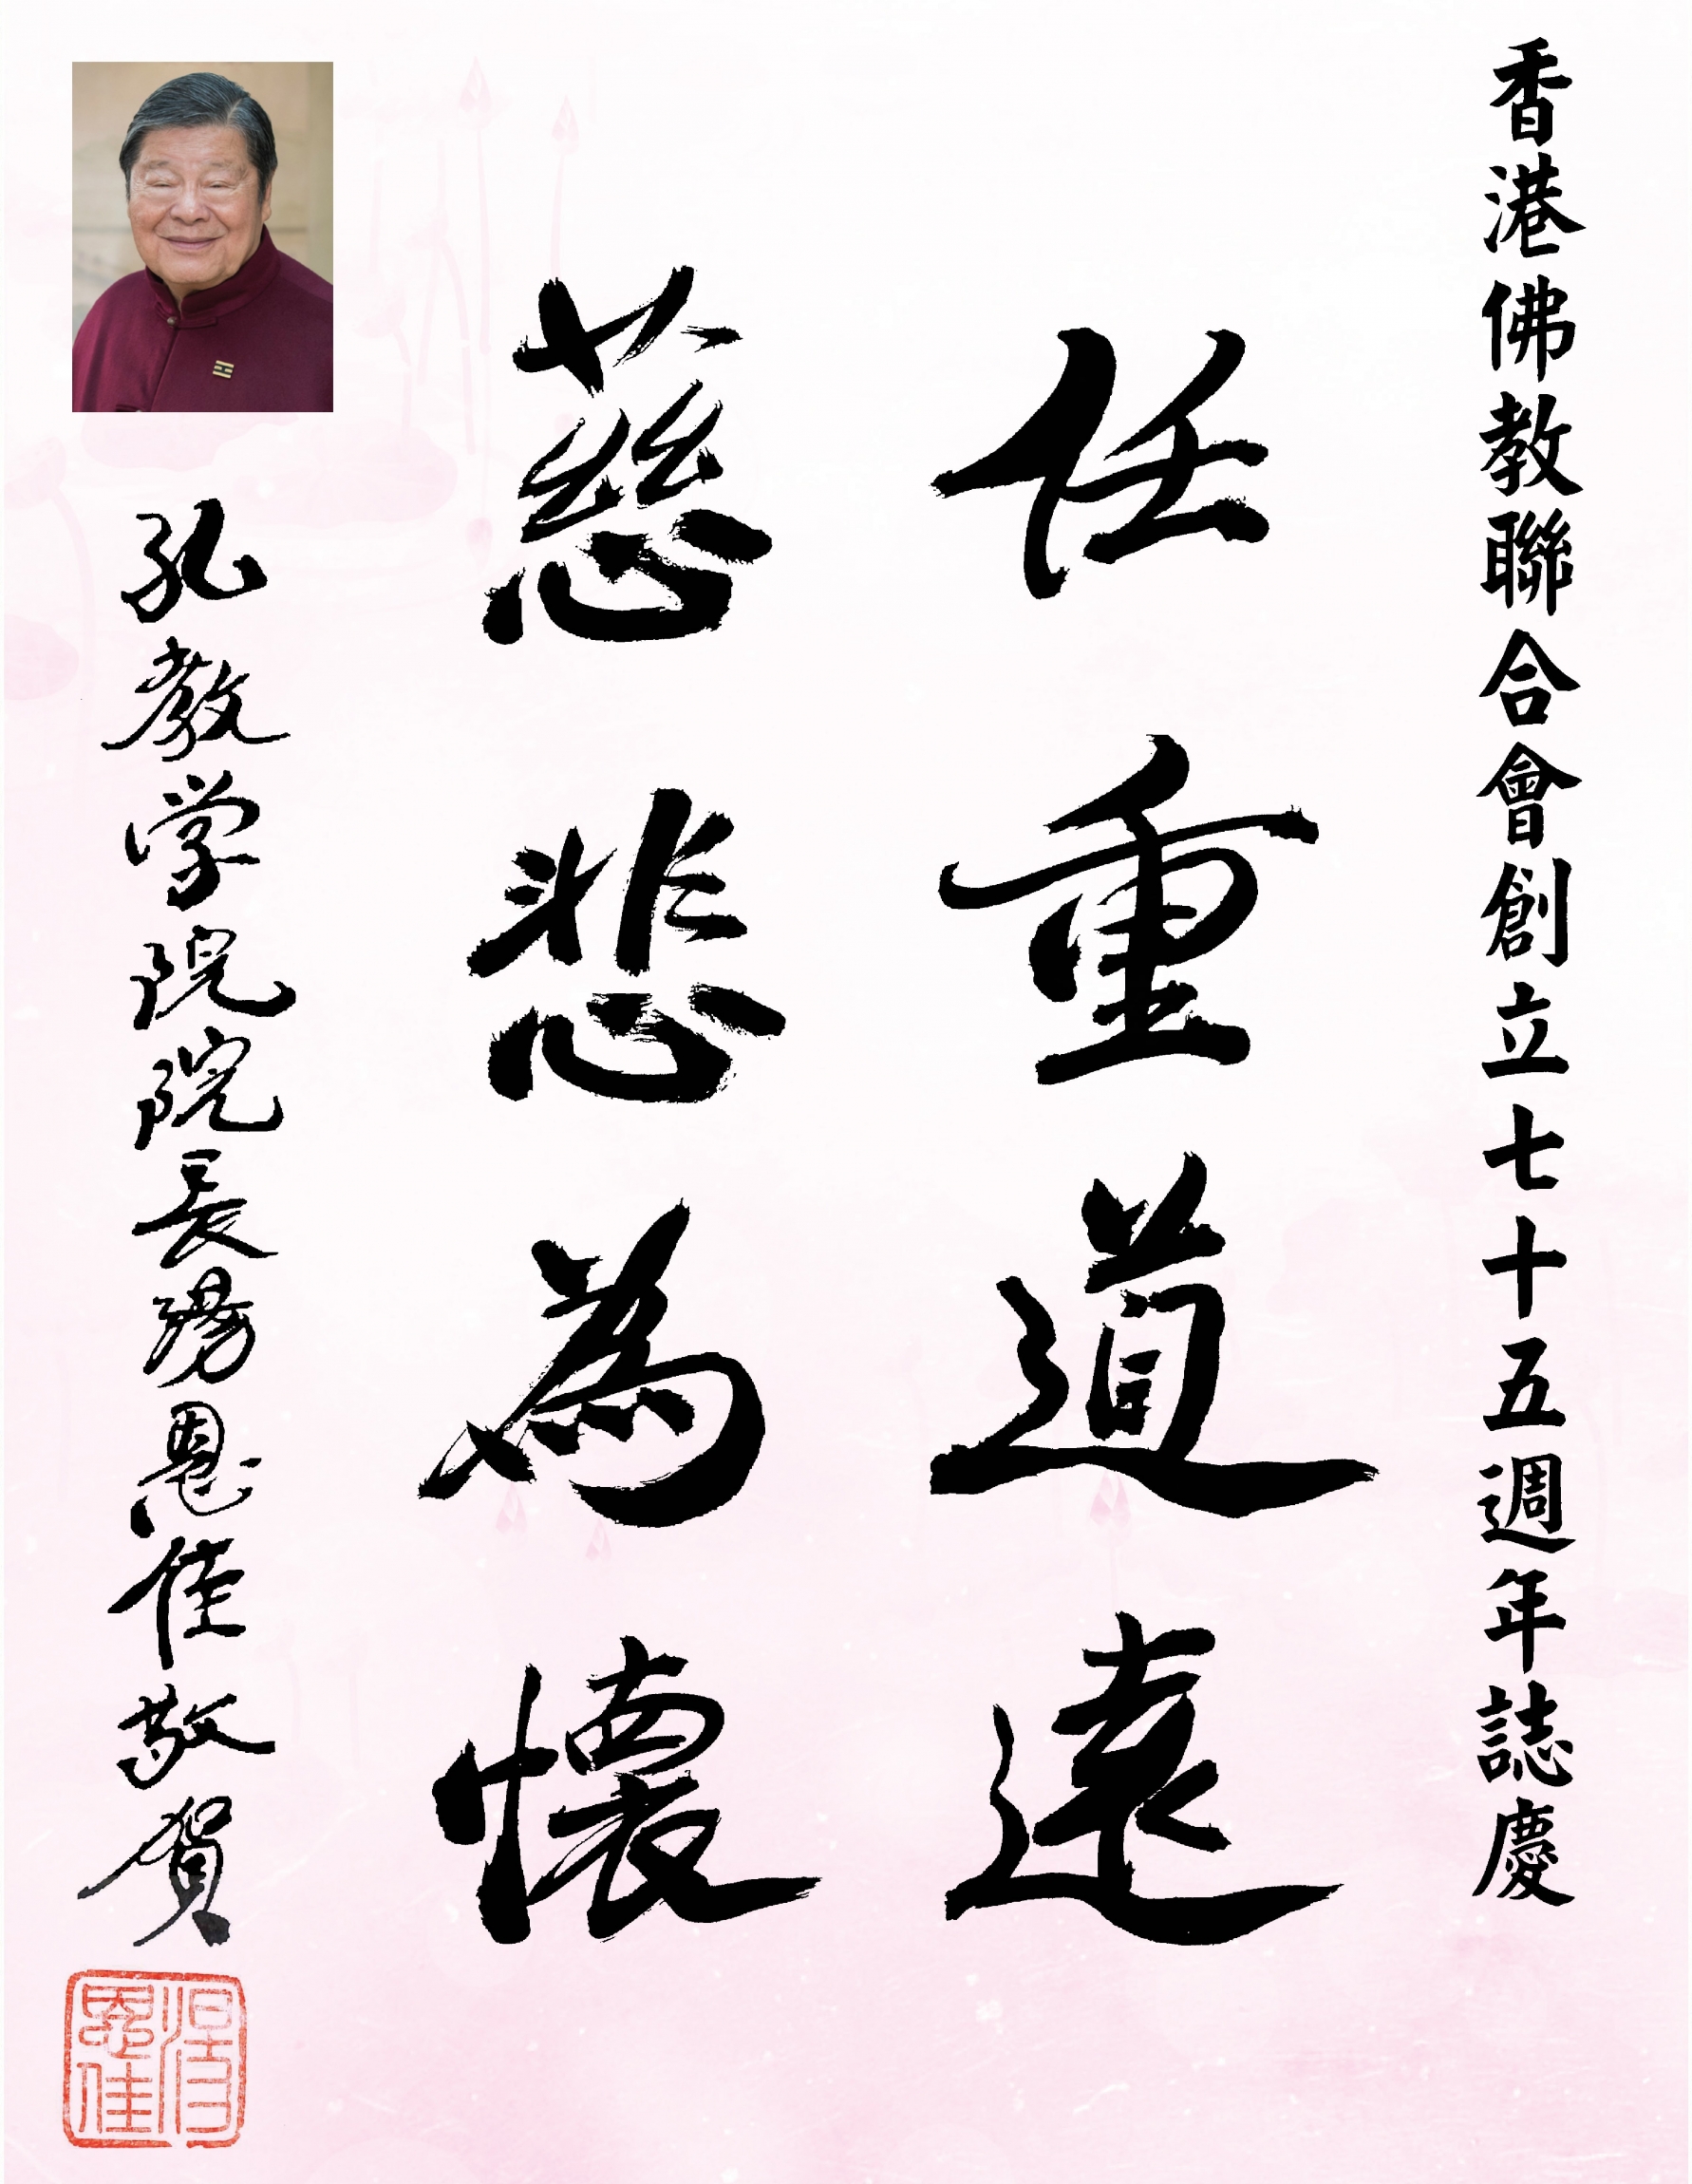 香港佛教聯合會創立七十五週年誌慶
任重道遠
慈悲為懷
孔教学院院長湯恩佳敬賀
湯恩佳